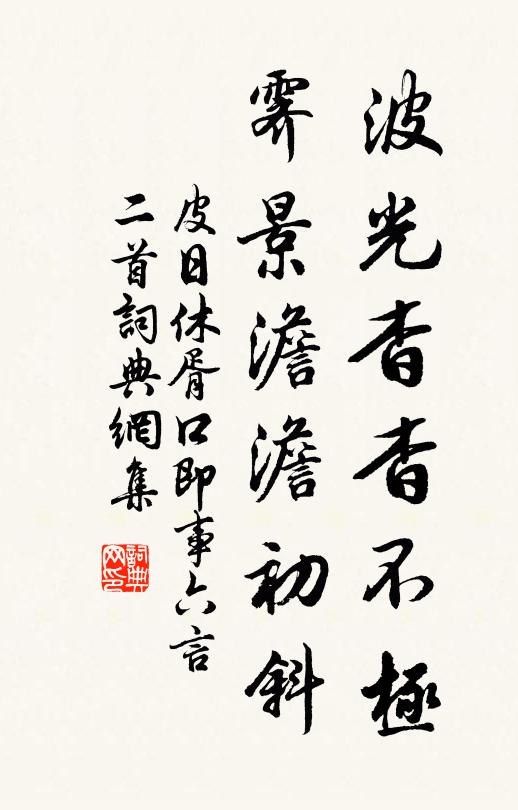 波光杳杳不極
霽景澹澹初斜
皮日休胥口即事六言
二首詞典網集
詞典网印